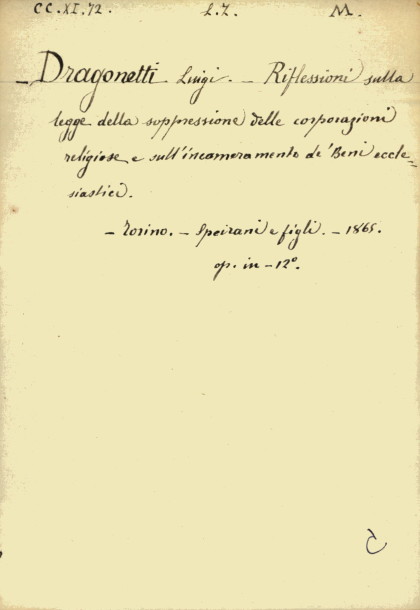 CC. XI. 72. L. Z. M.
– Dragonetti Luigi. – Riflessioni sulla
legge della soppressione delle corporazioni
religiose e sull'incameramento de' Beni eccle=
siastici.
– Torino. – Speirani e figli. – 1865.
op. in – 12°.